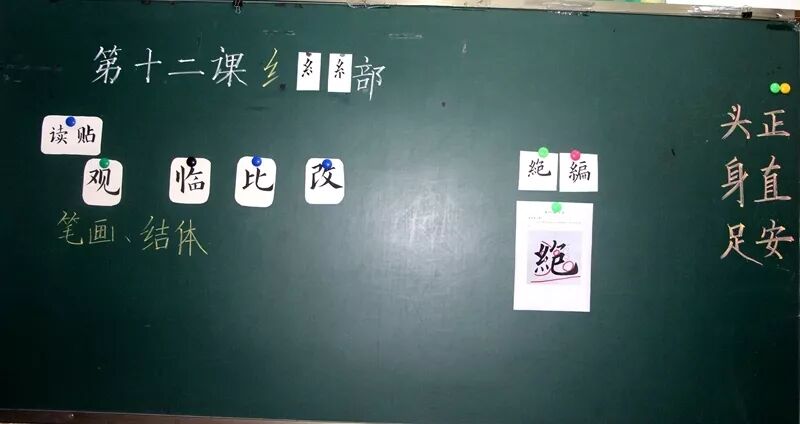 第十二课纟糹糹部
读贴
观 临 比 改
笔画、结体
絶 編
絶
头正
身直
足安